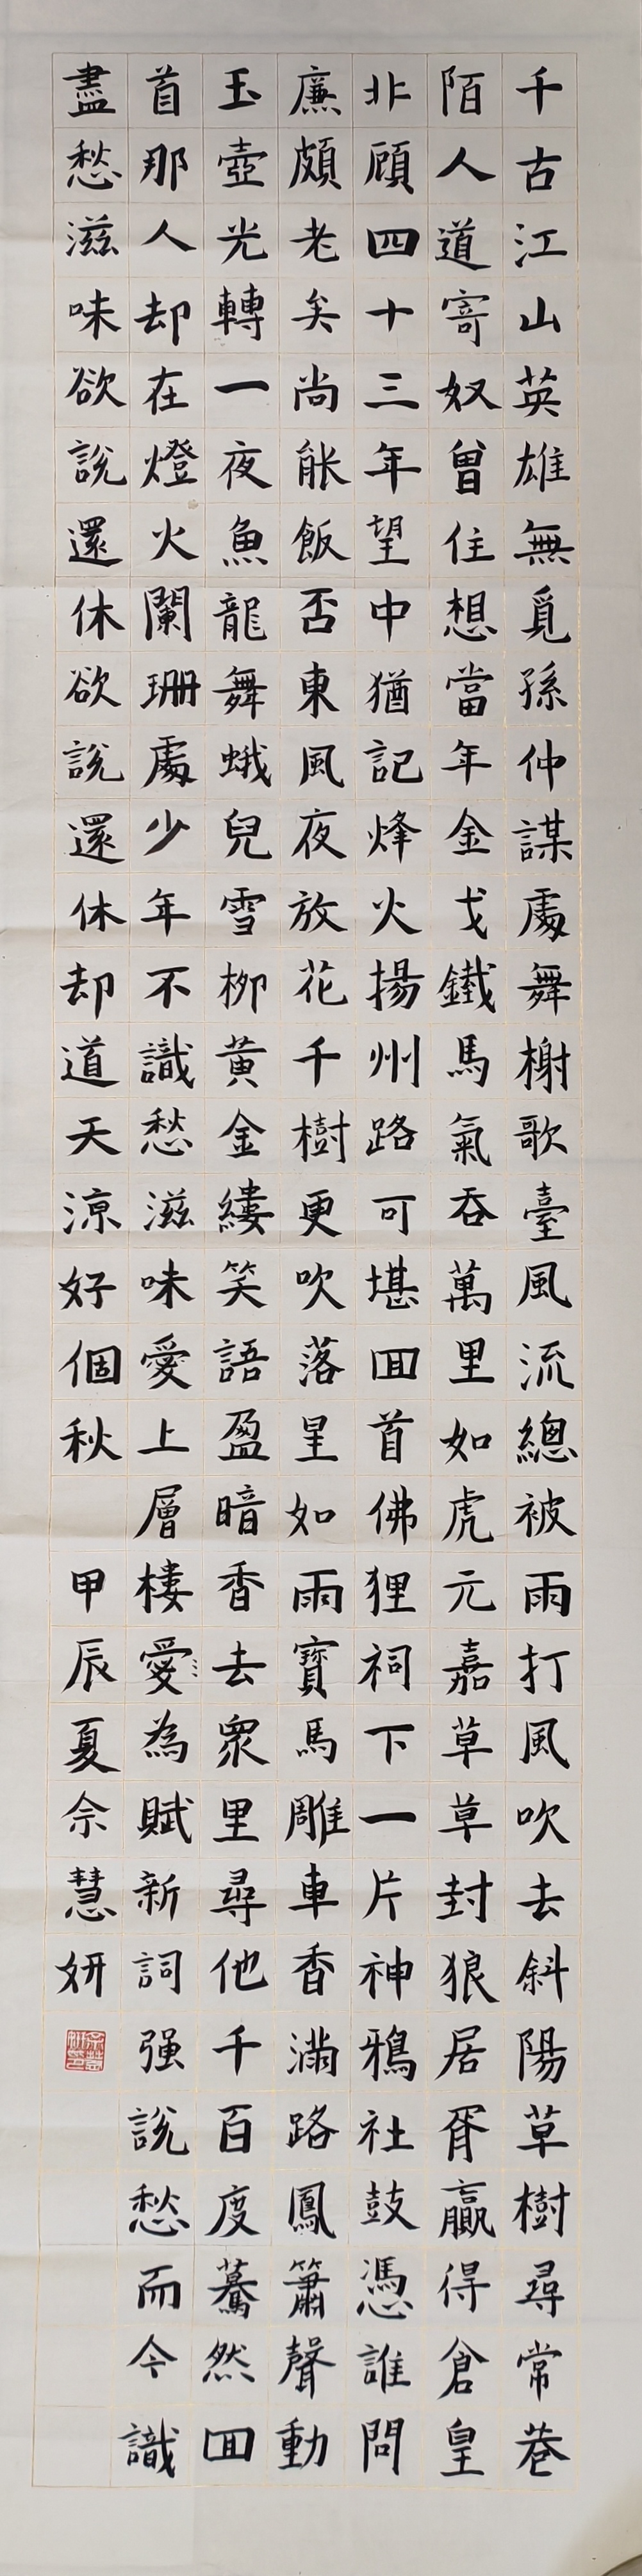 千古江山英雄無覓孫仲謀處舞榭歌臺風流總被雨打風吹去斜陽草樹尋常巷
陌人道寄奴曾住想當年金戈鐵馬氣吞萬里如虎元嘉草草封狼居胥贏得倉皇
北顧四十三年望中猶記烽火揚州路可堪囬首佛狸祠下一片神鴉社鼓憑誰問
廉頗老矣尚能飯否東風夜放花千樹更吹落星如雨寶馬雕車香滿路鳳簫聲動
玉壺光轉一夜魚龍舞蛾兒雪柳黃金縷笑語盈暗香去眾里尋他千百度驀然囬
首那人却在燈火闌珊處少年不識愁滋味愛上層樓愛為賦新詞强說愁而今識
盡愁滋味欲說還休欲說還休却道天涼好個秋 甲辰夏佘慧妍